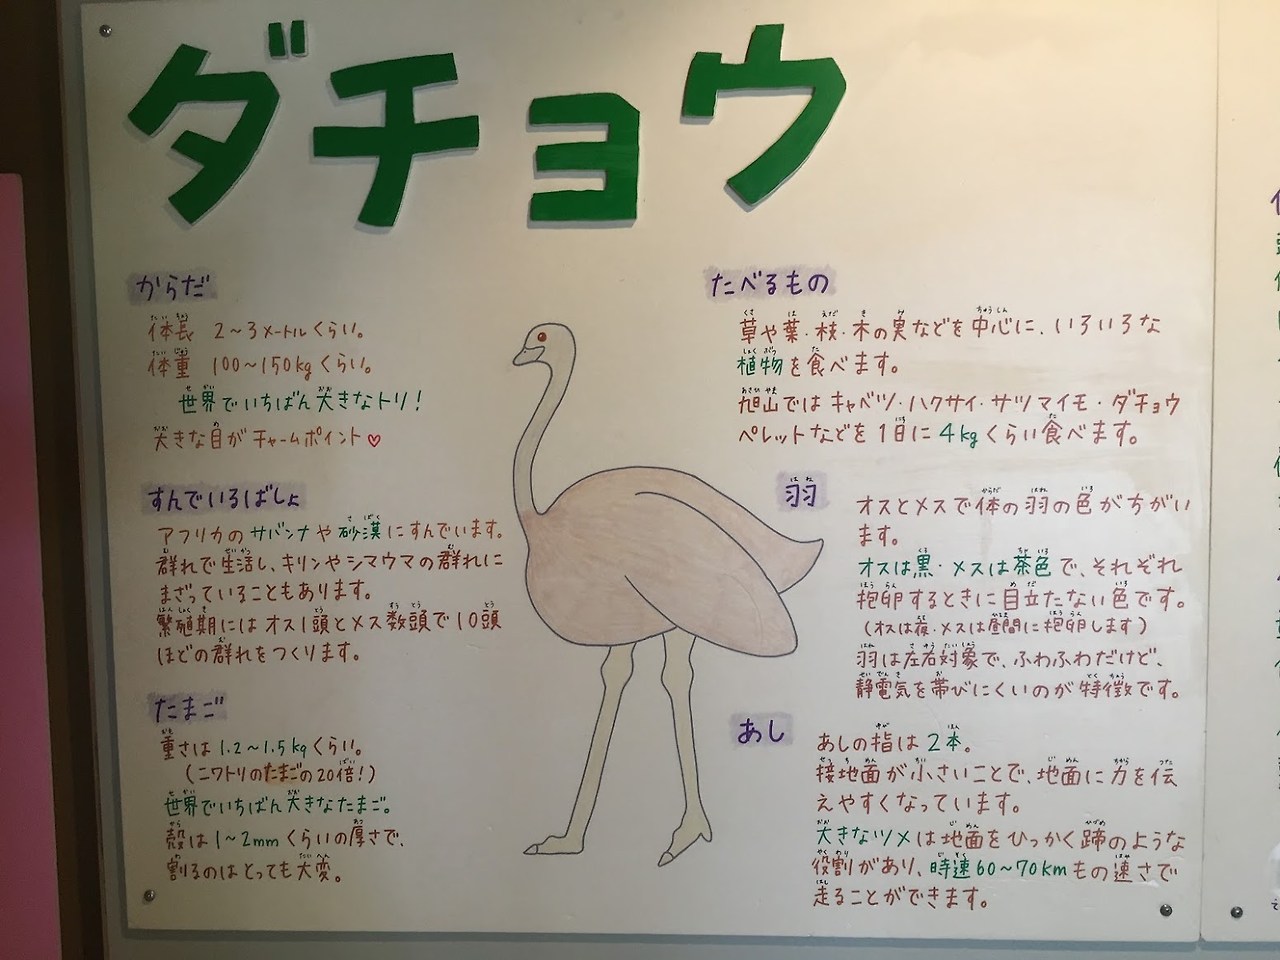 ダチョウ
からだ
体長 2~3メートルくらい。
体重 100~150kgくらい。
世界でいちばん大きなトリ!
大きな目がチャームポイント♡
すんでいるばしょ
アフリカのサバンナや砂漠にすんでいます。
群れで生活し、キリンやシマウマの群れに
まざっていることもあります。
繁殖期にはオス1頭とメス数頭で10頭
ほどの群れをつくります。
たまご
重さは1.2~1.5kgくらい。
(ニワトリのたまごの20倍!)
世界でいちばん大きなたまご。
殻は1~2mmくらいの厚さで、
割るのはとっても大変。
たべるもの
草や葉・枝・木の実などを中心に、いろいろな
植物を食べます。
旭山ではキャベツ・ハクサイ・サツマイモ・ダチョウ
ペレットなどを1日に4kgくらい食べます。
羽
オスとメスで体の羽の色がちがい
ます。
オスは黒・メスは茶色で、それぞれ
抱卵するときに目立たない色です。
(オスは夜・メスは昼間に抱卵します)
羽は左右対象で、ふわふわだけど、
静電気を帯びにくいのが特徴です。
あし
あしの指は2本。
接地面が小さいことで、地面に力を伝
えやすくなっています。
大きなツメは地面をひっかく蹄のような
役割があり、時速60~70kmもの速さで
走ることができます。